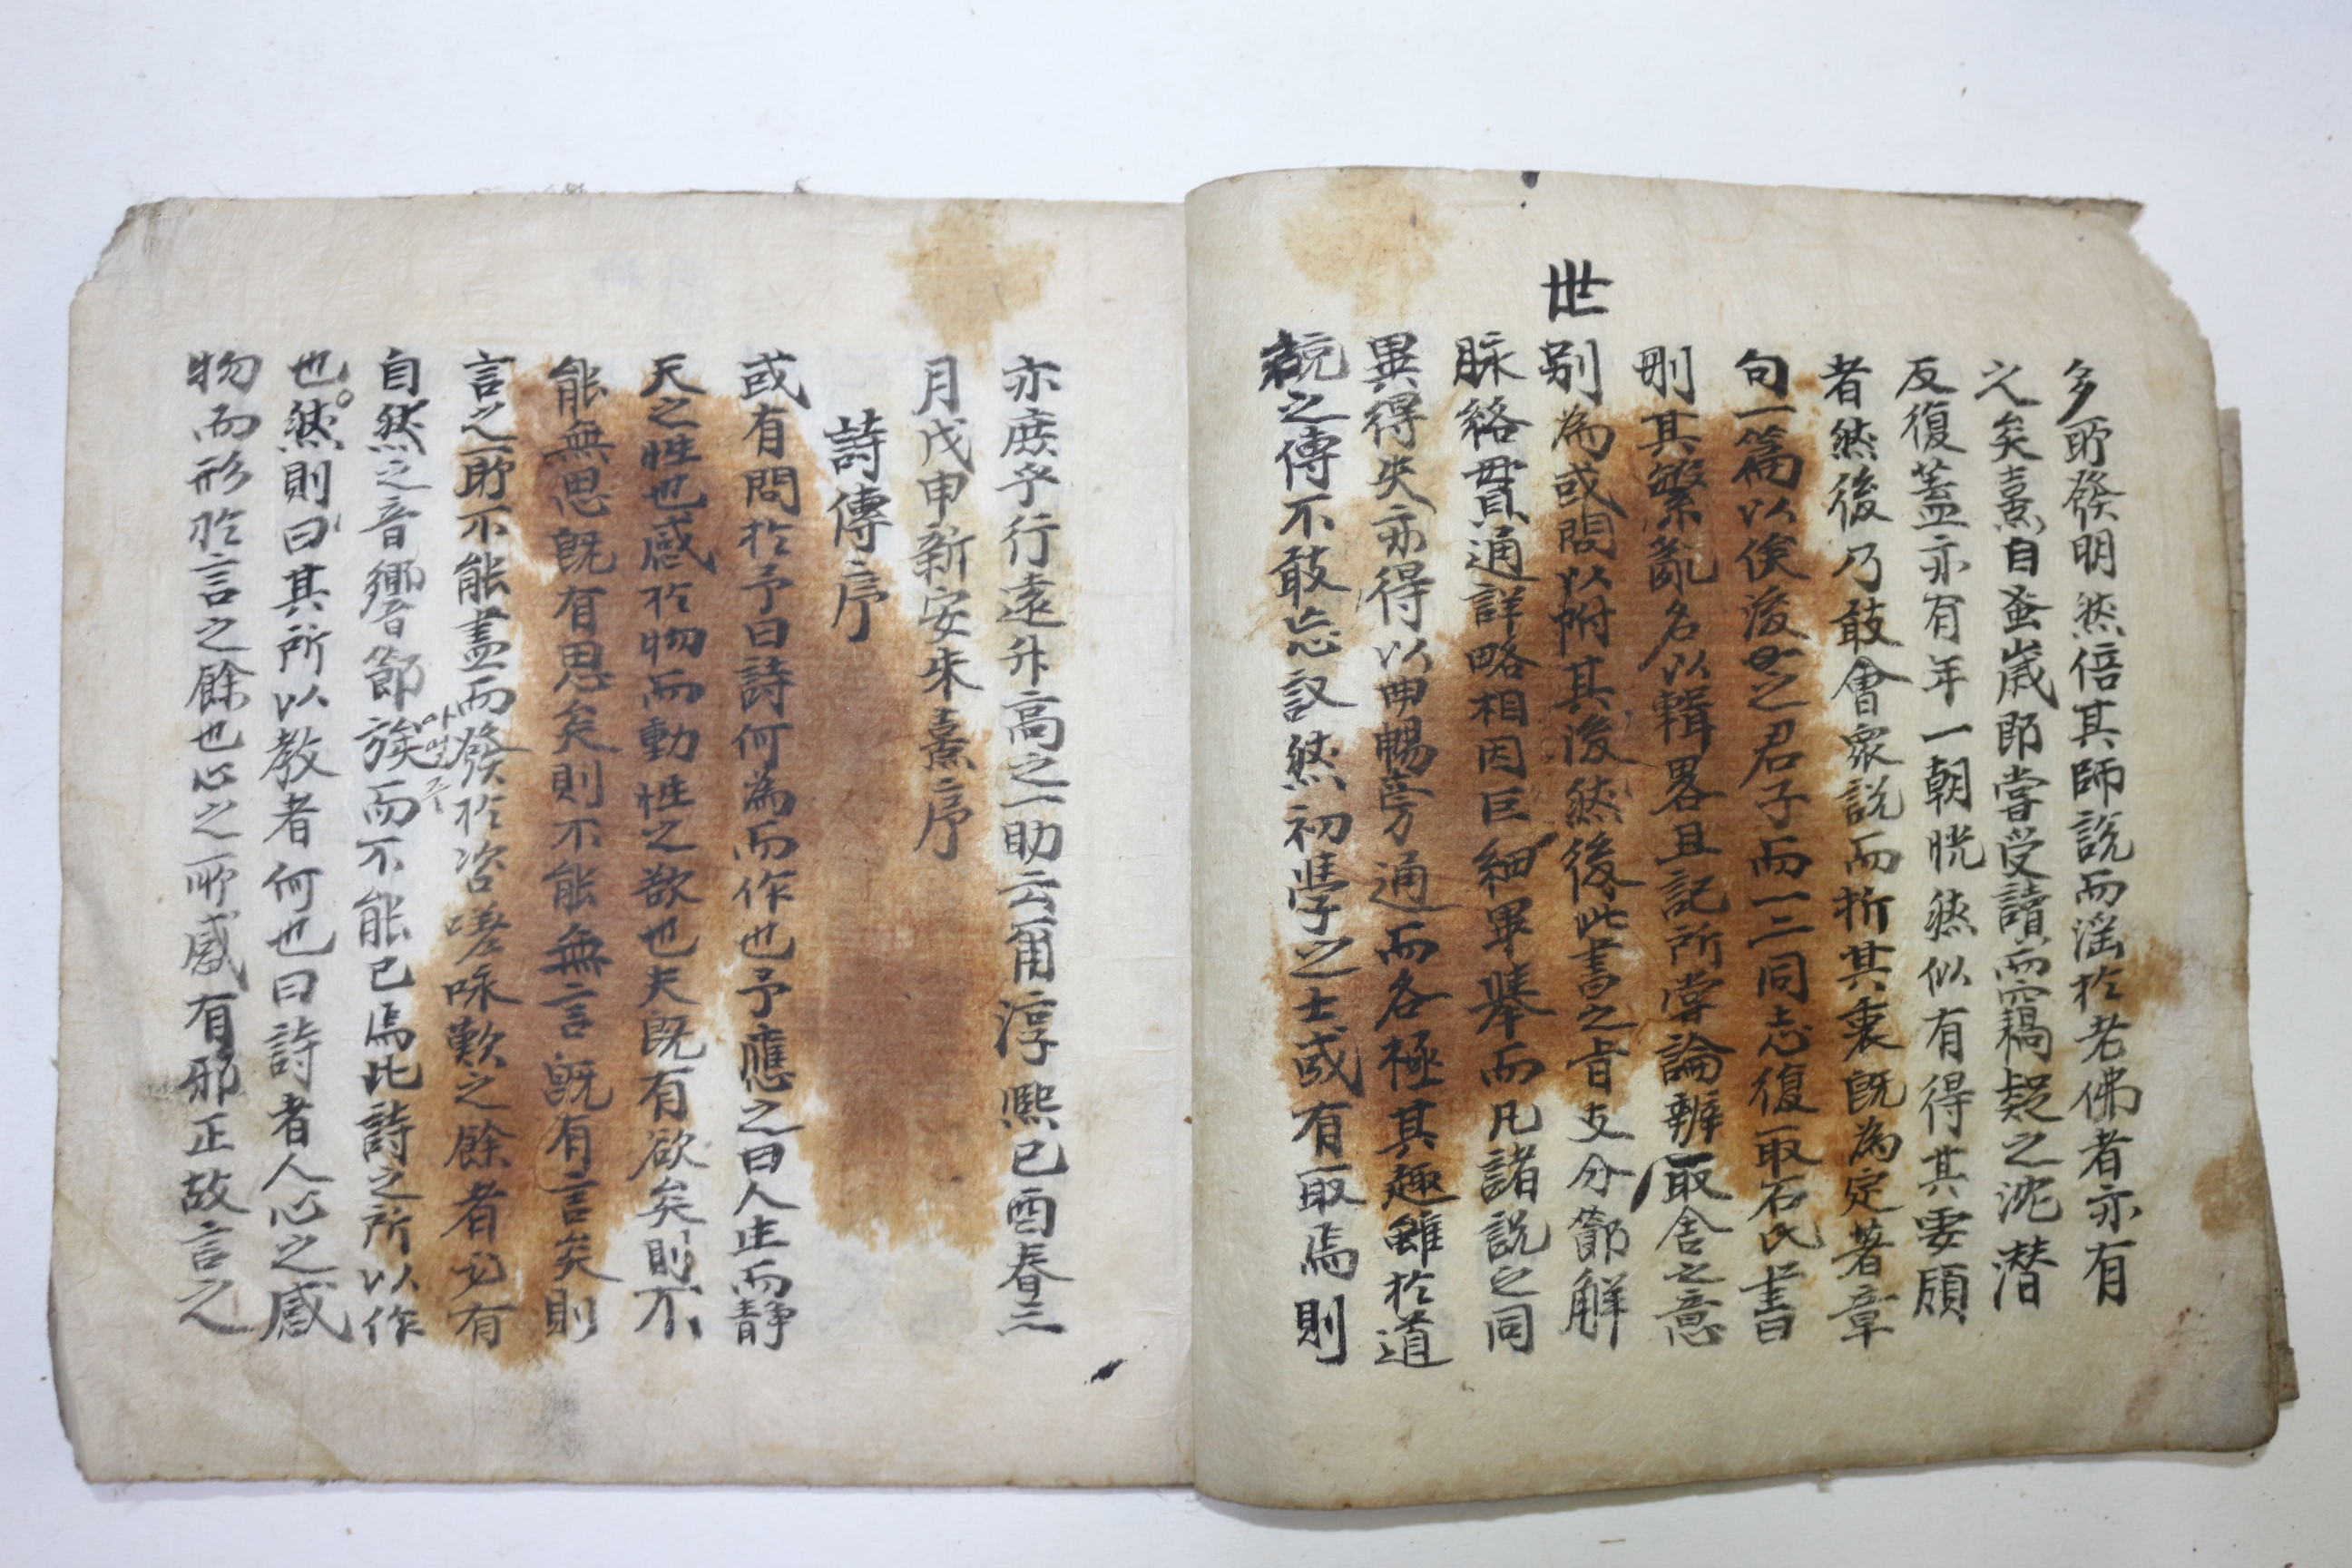 多所發明然倍其師說而淫於老佛者亦有
之矣熹自蚤歲卽嘗受讀而竊疑之沈潛
反復蓋亦有年一朝恍然似有得其要領
者然後乃敢會衆說而折其衷旣爲定著章
句一篇以俟後之君子而一二同志復取石氏書
刪其繁亂名以輯畧且記所嘗論辨取舍之意
世
別爲或問以附其後然後此書之旨支分節解
脉絡貫通詳略相因巨細畢擧而凡諸說之同
異得失亦得以曲暢旁通而各極其趣雖於道
統之傳不敢忘議然初學之士或有取焉則
亦庶乎行遠升高之一助云爾淳熙己酉春三
月戊申新安朱熹序
詩傳序
或有問於予曰詩何爲而作也予應之曰人生而靜
天之性也感於物而動性之欲也夫旣有欲矣則不
能無思旣有思矣則不能無言旣有言矣則
言之所不能盡而發於咨嗟咏歎之餘者必有
自然之音響節族而不能已焉此詩之所以作
也然則曰其所以敎者何也曰詩者人心之感
物而形於言之餘也心之所感有邪正故言之